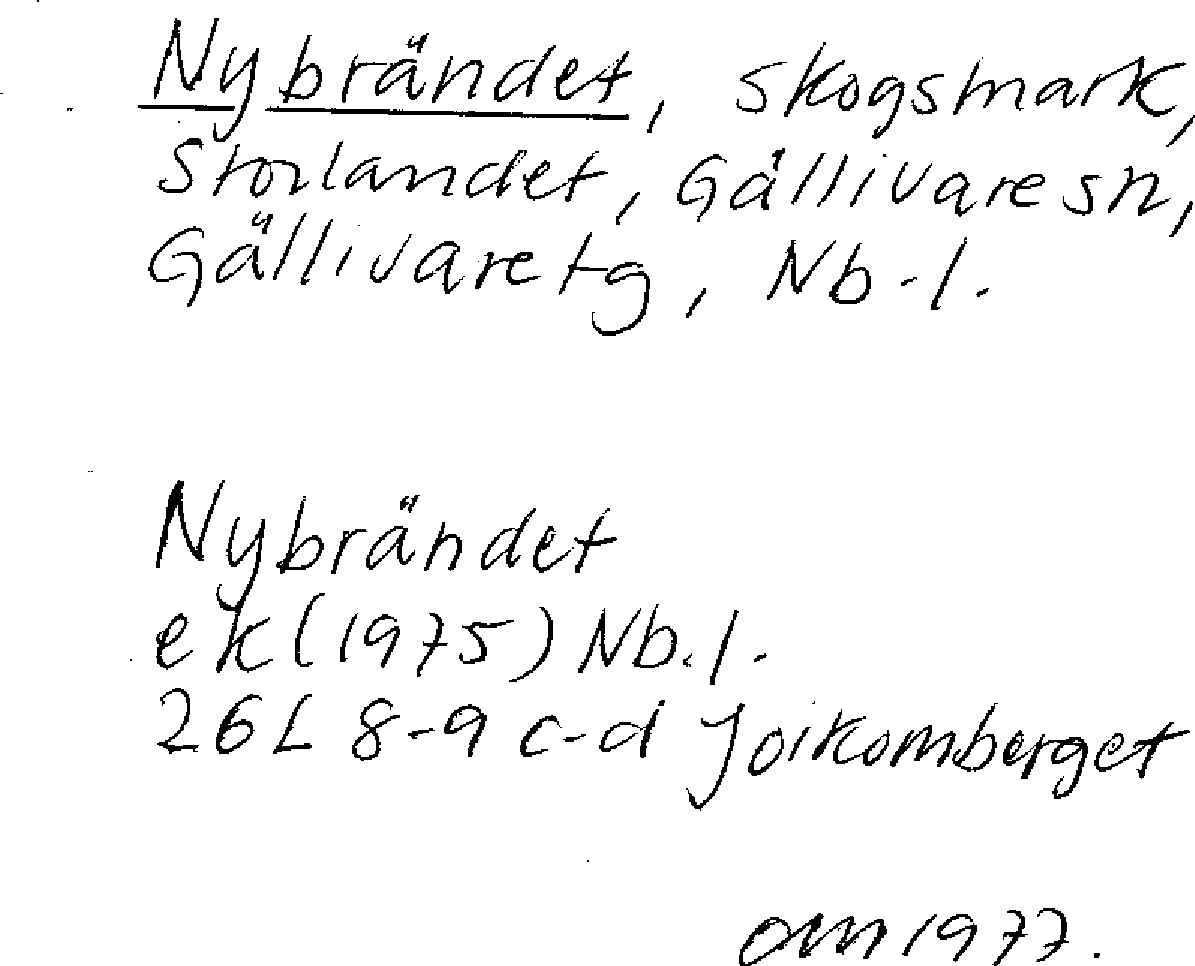 Nybrändet, skogsmark,
Storlandet, Gällivare sn,
Gällivare tg, Nb. l.
Nybrändet
ek (1975) Nb. l.
26L 8-9 c-d Joikomberget
om 1977.